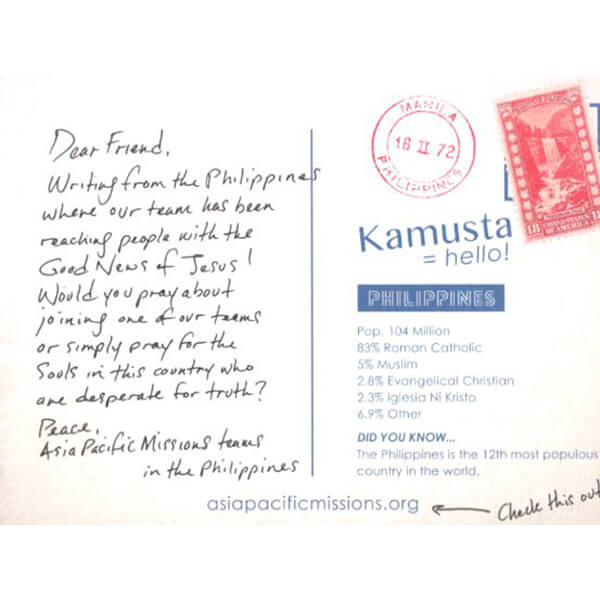 Dear Friend,
Writing from the Philippines
where our team has been
reaching people with the
Good News of Jesus!
Would you pray about
joining one of our teams
or simply pray for the
Souls in this country who
are desperate for truth?
Peace,
Asia Pacific Missions teams
in the Philippines
MANILA
18 II 72
PHILIPPINES
18 UNITED STATES 18
OF AMERICA
Kamusta
= hello!
PHILIPPINES
Pop. 104 Million
83% Roman Catholic
5% Muslim
2.8% Evangelical Christian
2.3% Iglesia Ni Kristo
6.9% Other
DID YOU KNOW...
The Philippines is the 12th most populous
country in the world.
asiapacificmissions.org
Check this out